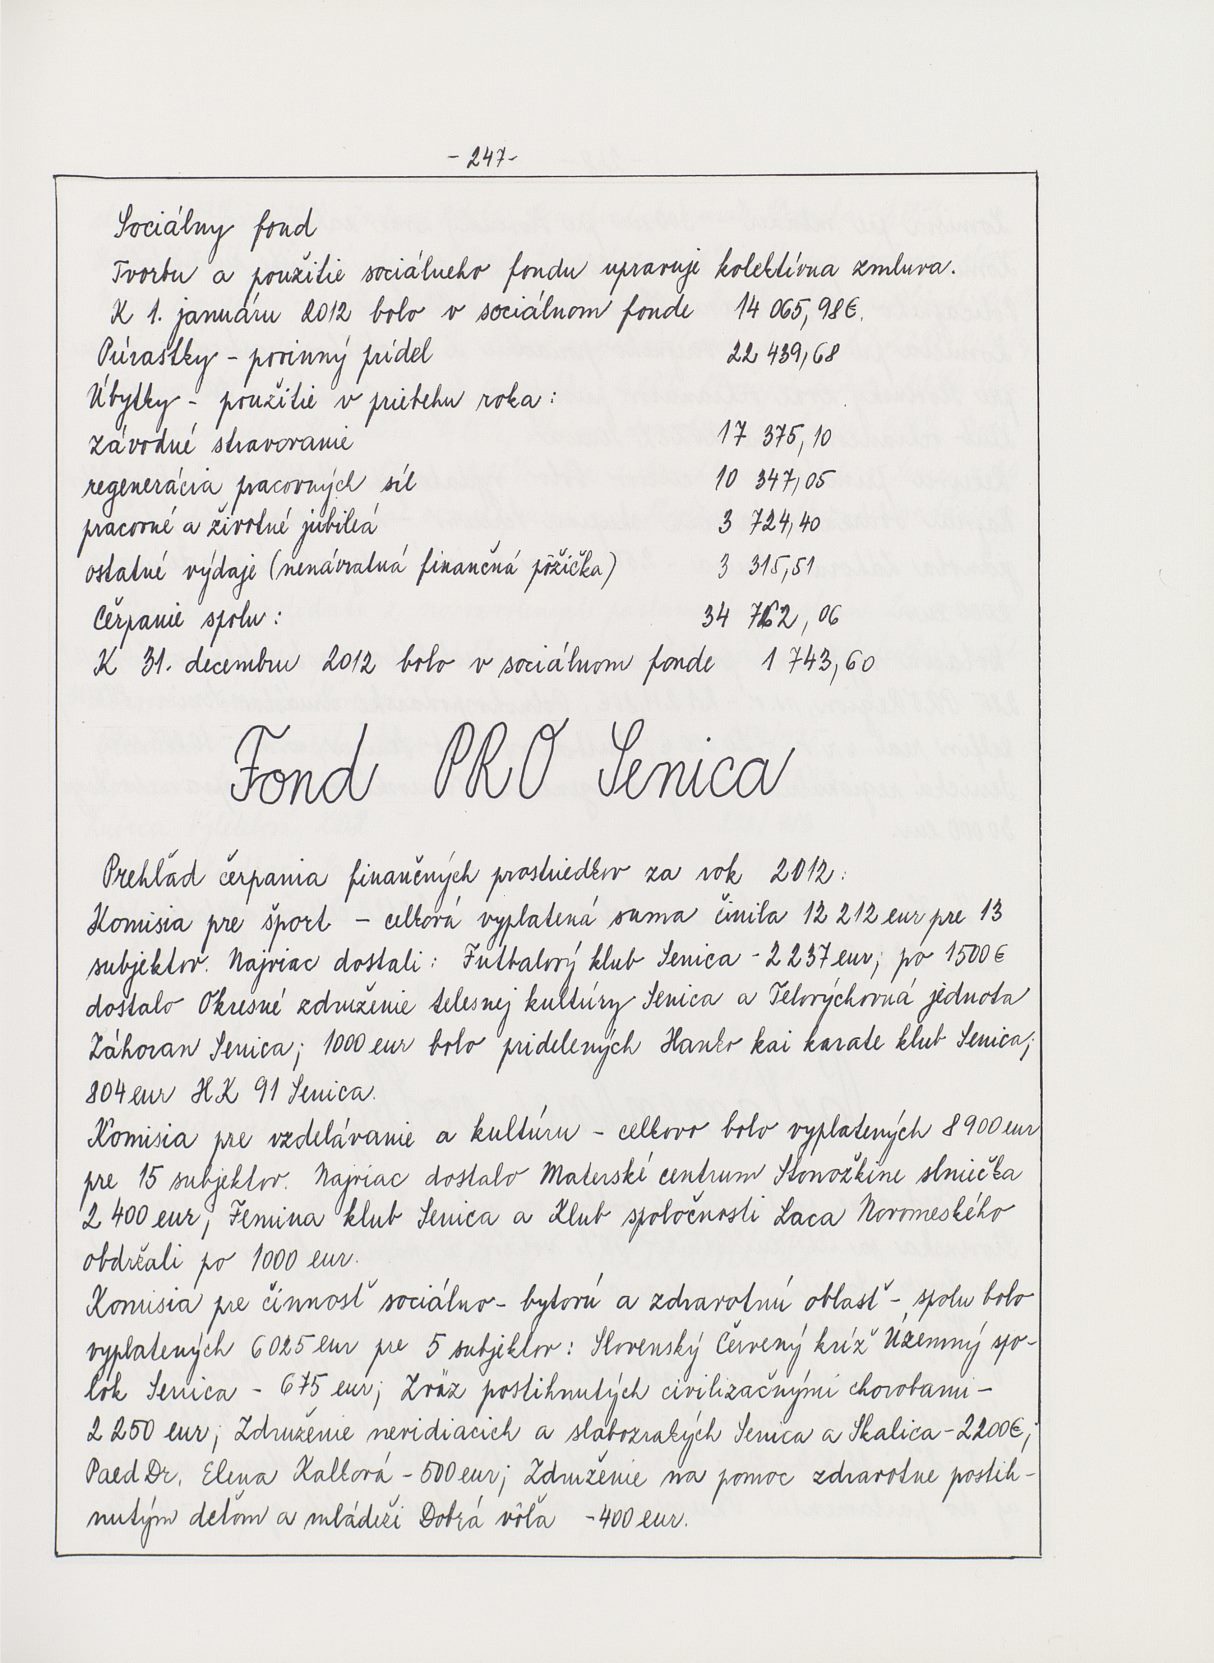 - 247-
Sociálny fond
Tvorbu a použitie sociálneho fondu upravuje kolektívna zmluva.
K 1. januáru 2012 bolo v sociálnom fonde 14 065,98€.
Prírastky - povinný prídel 22 439,68
Úbytky - použitie v priebehu roka:
závodné stravovanie 17 375,10
regenerácia pracovných síl 10 347,05
pracovné a životné jubileá 3 724,40
ostatné výdaje (nenávratná finančná pôžička) 3 315,51
Čerpanie spolu: 34 762,06
K 31. decembru 2012 bolo v sociálnom fonde 1 743,60
Fond PRO Senica
Prehľad čerpania finančných prostriedkov za rok 2012:
Komisia pre šport - celková vyplatená suma činila 12 212 eur pre 13
subjektov. Najviac dostali: Futbalový klub Senica - 2 237 eur; po 1500€
dostalo Okresné združenie telesnej kultúry Senica a Telovýchovná jednota
Záhoran Senica; 1000 eur bolo pridelených Hanko kai karate klub Senica;
804 eur HK 91 Senica.
Komisia pre vzdelávanie a kultúru - celkovo bolo vyplatených 8 900 eur
pre 15 subjektov. Najviac dostalo Materské centrum Stonožkine slniečka
2 400 eur; Femina klub Senica a Klub spoločnosti Laca Novomeského
obdržali po 1000 eur.
Komisia pre činnosť sociálno-bytovú a zdravotnú oblasť - spolu bolo
vyplatených 6 025 eur pre 5 subjektov: Slovenský Červený kríž Územný spo-
lok Senica - 675 eur; Zväz postihnutých civilizačnými chorobami -
2 250 eur; Združenie nevidiacich a slabozrakých Senica a Skalica - 2200€;
Paed Dr. Elena Kalková - 500 eur; Združenie na pomoc zdravotne postih-
nutým deťom a mládeži Dobrá vôľa - 400 eur.